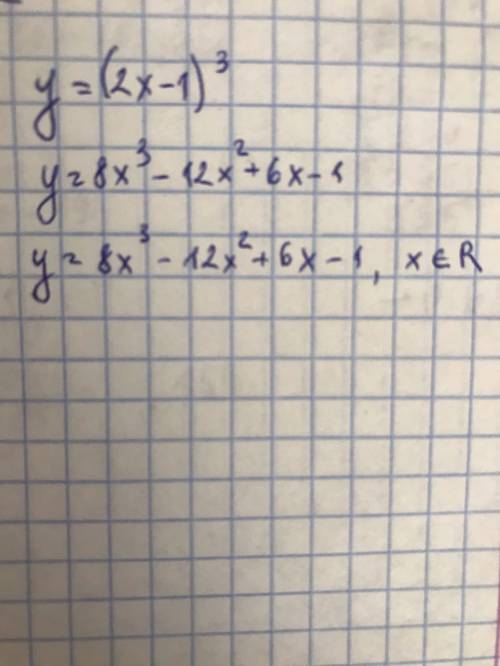 y = (2x-1)³
y = 8x³ - 12x² + 6x - 1
y = 8x³ - 12x² + 6x - 1, x ∈ R